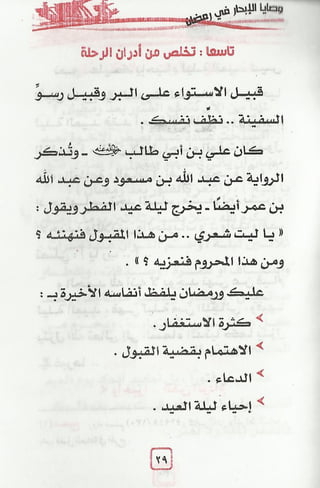 وصايا الإبحار في رمضان
تاسعا : تخلص من أدران الرحلة
قبيل الاستواء على البر وقبيل رسوِّ
السفينة .. نظِّف نفسك .
كان علي بن أبي طالب رضي الله عنه - وتُذكر
الرواية عن عبد الله بن مسعود وعن عبد الله
بن عمر أيضًا - يخرج ليلة عيد الفطر ويقول :
« يا ليت شعري .. من هذا المقبول فنهنئه ؟
ومن هذا المحروم فنعزيه ؟ » .
عليك ورمضان يلفظ أنفاسه الأخيرة بـ :
كثرة الاستغفار .
الاهتمام بقضية القبول .
الدعاء .
إحياء ليلة العيد .
٢٩